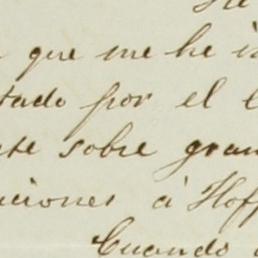 que me he
tado por el
sobre gran
ciones á Hoff
Cuando